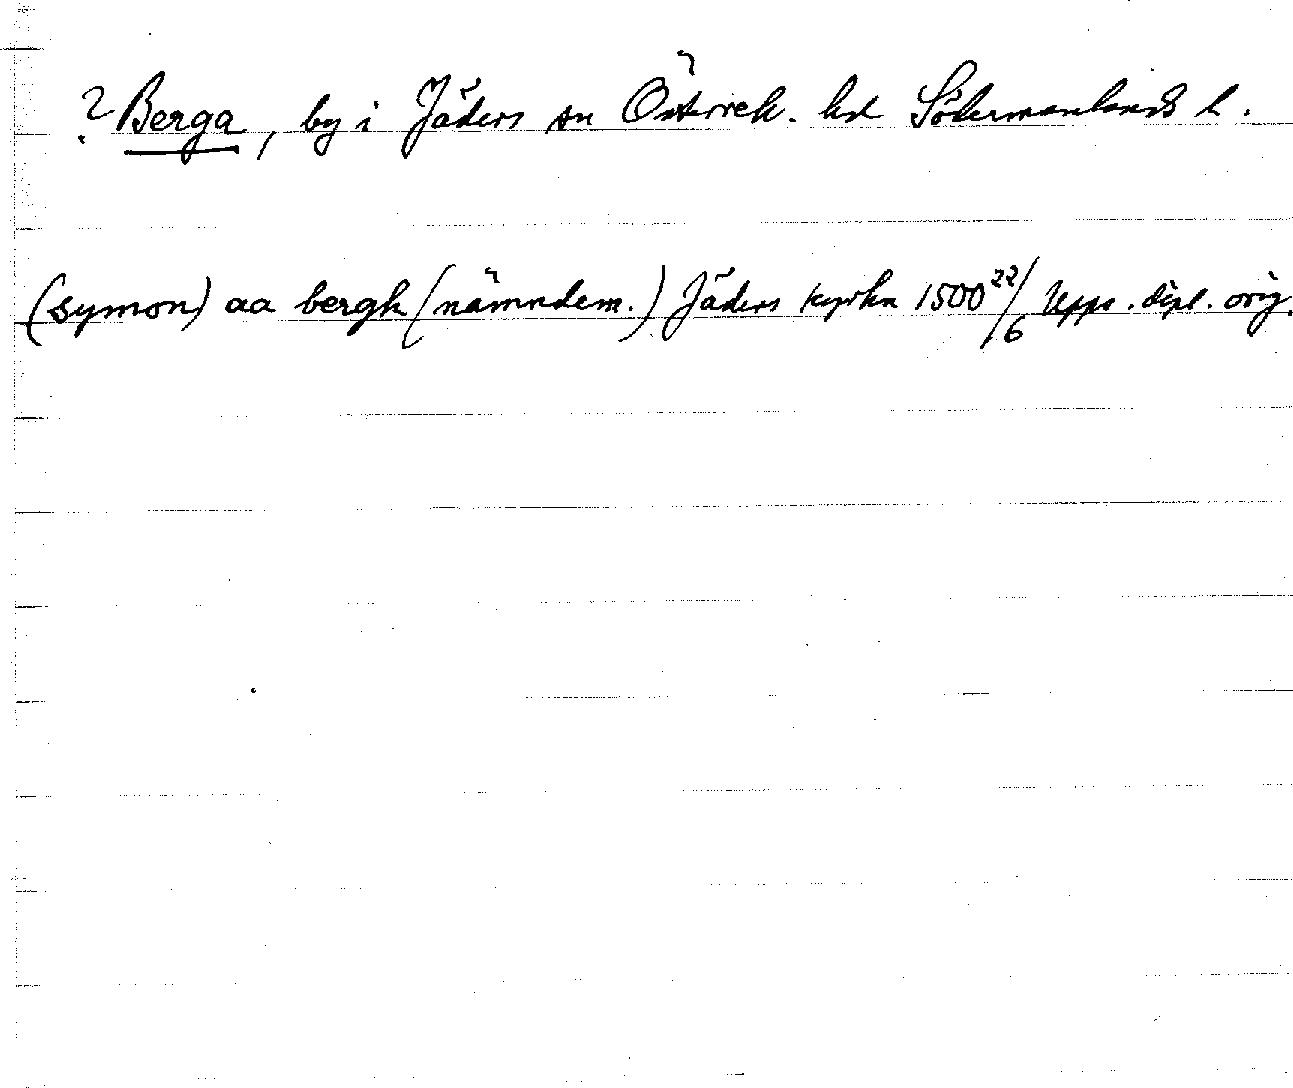 ? Berga, by i Jäders sn Österrek. hd Södermanlands l.
(symon) aa bergh (nämndem.) Jäders kyrka 1500 22/6 Upps. dipl. orig.